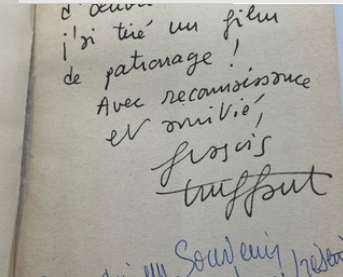 j'ai tiré un film
de patronage !
Avec reconnaissance
et amitié,
françois
truffaut
un Souvenir